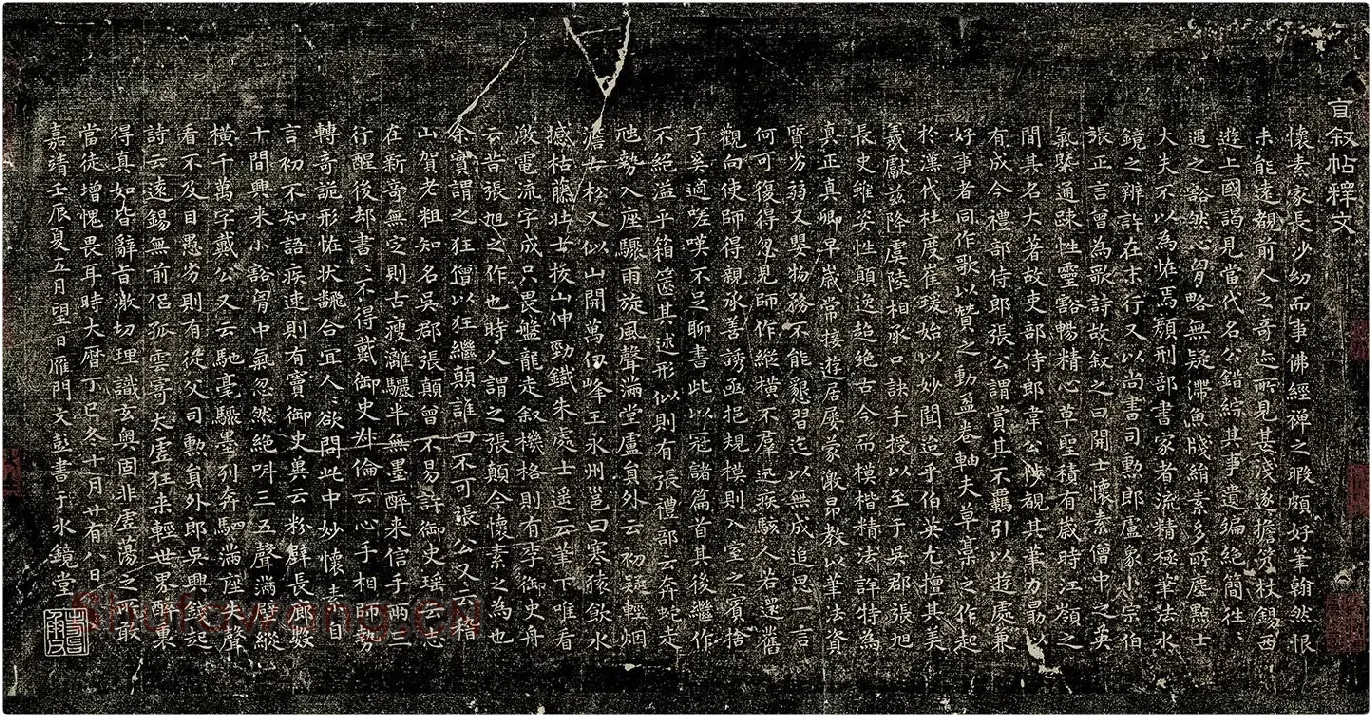 自叙帖釋文
懷素家長少幼而事佛經禪之暇頗好筆翰然恨
未能遠覩前人之奇迹所見甚淺遂擔笈杖錫西
遊上國謁見當代名公錯綜其事遺編絶簡往〻
遇之豁然心胷略無疑滯魚牋絹素多所塵點士
大夫不以為恠焉顏刑部書家者流精極筆法水
鏡之辨許在末行又以尚書司勳郎盧象小宗伯
張正言曾為歌詩故叙之曰開士懷素僧中之英
氣槩通疎性靈豁暢精心草聖積有歲時江嶺之
間其名大著故吏部侍郎韋公陟覩其筆力勗以
有成今禮部侍郎張公謂賞其不羈引以遊處兼
好事者同作歌以贊之動盈卷軸夫草藁之作起
於漢代杜度崔瑗始以妙聞迨乎伯英尤擅其美
羲獻茲降虞陸相承口訣手授以至于吳郡張旭
長史雖姿性顛逸超絶古今而模楷精法詳特為
真正真卿早歲常接遊居屢蒙激昂教以筆法資
質劣弱又嬰物務不能懇習迄以無成追思一言
何可復得忽見師作縱橫不羣迅疾駭人若還舊
觀向使師得親承善誘亟挹規模則入室之賓捨
子奚適嗟嘆不足聊書此以冠諸篇首其後繼作
不絶溢乎箱篋其述形似則有張禮部云奔蛇走
虺勢入座驟雨旋風聲滿堂盧員外云初疑輕烟
澹古松又似山開萬仞峰王永州邕曰寒猿飲水
撼枯藤壯士拔山伸勁鐵朱處士遥云筆下唯看
激電流字成只畏盤龍走叙機格則有李御史舟
云昔張旭之作也時人謂之張顛今懷素之為也
余實謂之狂僧以狂繼顛誰曰不可張公又云稽
山賀老粗知名吳郡張顛曾不易許御史瑶云志
在新奇無定則古瘦灕驪半無墨醉来信手兩三
行醒後却書〻不得戴御史叔倫云心手相師勢
轉奇詭形恠状飜合宜人〻欲問此中妙懷素自
言初不知語疾速則有竇御史兾云粉壁長廊數
十間興来小豁胷中氣忽然絶叫三五聲滿壁縱
横千萬字戴公又云馳毫驟墨列奔駟滿座失聲
看不及目愚劣則有從父司勳員外郎吳興錢起
詩云遠錫無前侶孤雲寄太虛狂来輕世界醉裏
得真如皆辭旨激切理識玄奧固非虛蕩之所敢
當徒增愧畏耳時大曆丁巳冬十月廿有八日
嘉靖壬辰夏五月望日雁門文彭書于水鏡堂
Shufawang.CN